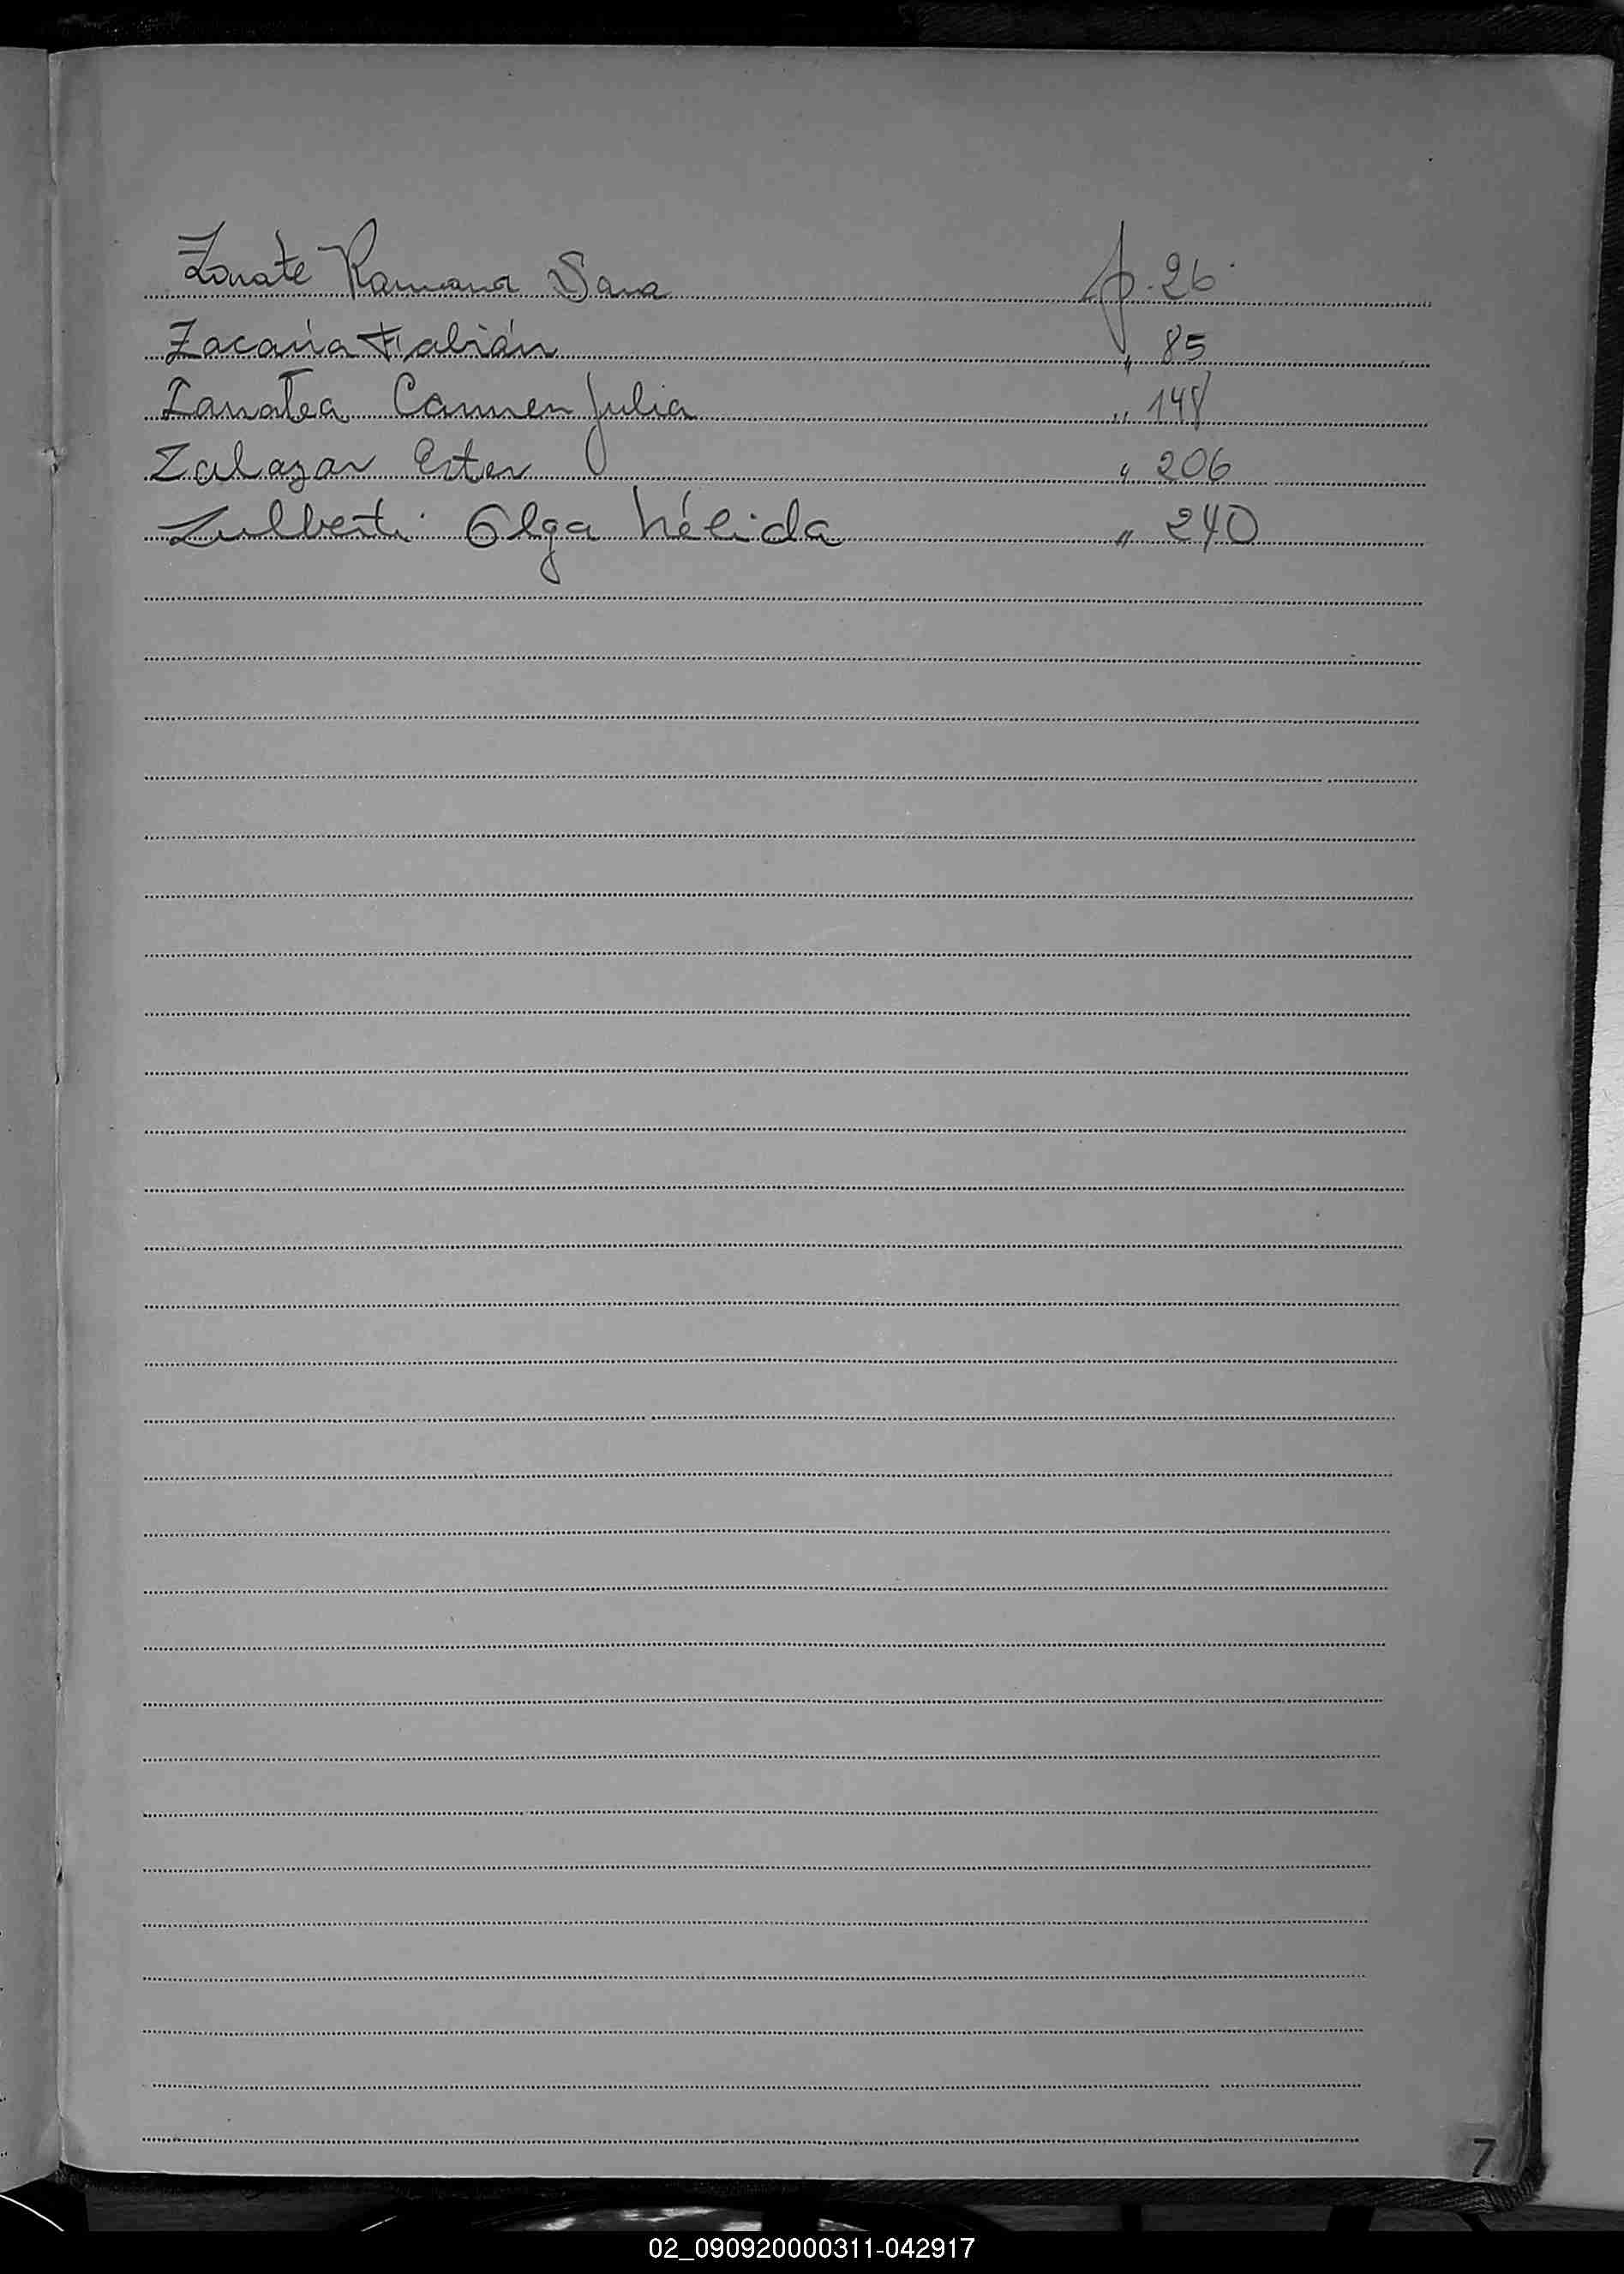 Zarate Ramona Sara f. 26
Zacaría Fabián " 85
Zanatea Carmen Julia " 148
Zalazar Ester " 206
Zulberti Olga Nélida " 240
Z
02_090920000311-042917